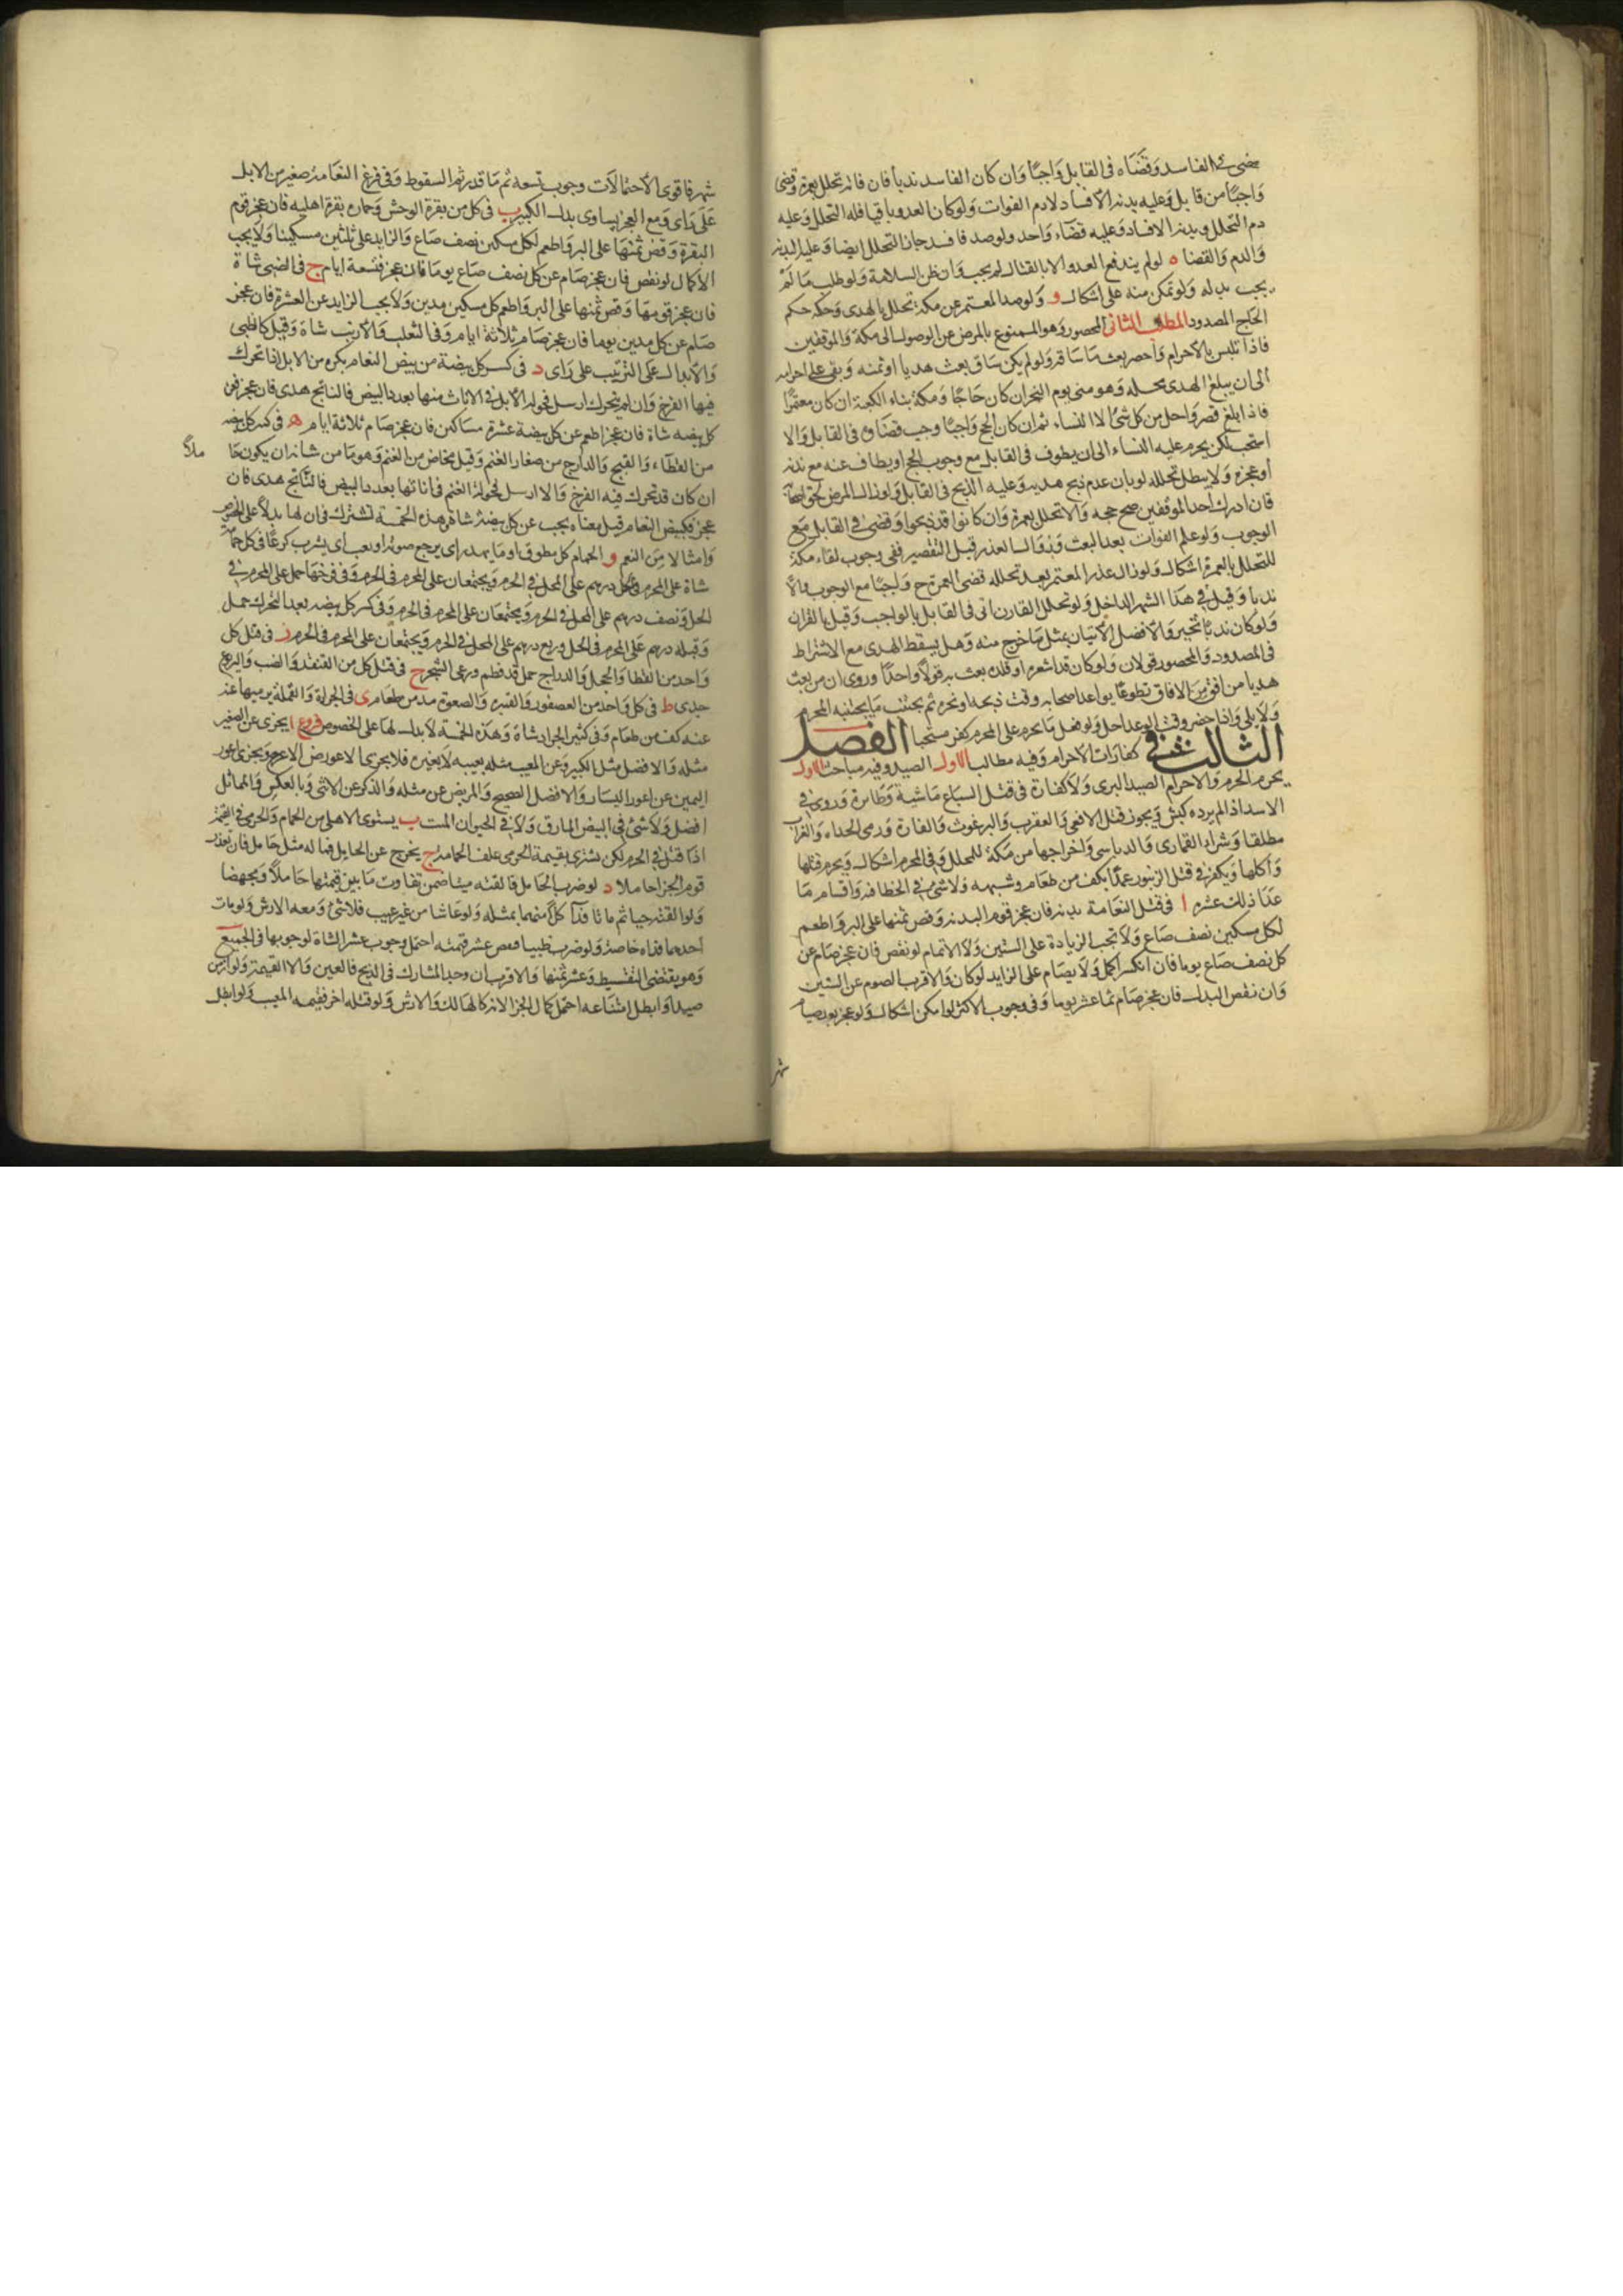 مضى في الفاسد وقضاه في القابل واجبًا وان كان الفاسد ندبا فان فاته تحلل بعمرة وقضى
واجبًا من قابل وعليه بدنة الافساد لا دم الفوات ولو كان العدو باقيا فله التحلل وعليه
دم التحلل وبدنة الافساد وعليه قضاء واحد ولو صد فافسد جاز التحلل ايضا وعليه البدنة
والدم والقضا ه لو لم يندفع العدو الا بالقتال لم يجب وان ظن السلامة ولو طلب مالا لم
يجب بذله ولو تمكن منه على اشكال و ولو صد المعتمر عن مكة تحلل بالهدي وحكمه حكم
الحاج المصدود المطلب الثاني المحصور وهو الممنوع بالمرض عن الوصول الى مكة والموقفين
فاذا تلبس بالاحرام واحصر بعث ما ساقه ولو لم يكن ساق بعث هديا او ثمنه وبقي على احرامه
الى ان يبلغ الهدي محله وهو منى يوم النحر ان كان حاجًا ومكة بفناء الكعبة ان كان معتمرًا
فاذا بلغ قصر واحل من كل شئ الا النساء ثم ان كان الحج واجبًا وجب قضاوه في القابل والا
استحب لكن يحرم عليه النساء الى ان يطوف في القابل مع وجوب الحج او يطاف عنه مع ندبه
او عجزه ولا يبطل تحلله لو بان عدم ذبح هديه وعليه الذبح في القابل ولو زال المرض لحق اصحابه
فان ادرك احد الموقفين صح حجه والا تحلل بعمرة وان كانوا قد ذبحوا وقضى في القابل مع
الوجوب ولو علم الفوات بعد البعث وزوال العذر قبل التقصير ففي وجوب لقاء مكة
للتحلل بالعمرة اشكال ولو زال عذر المعتمر بعد تحلله قضى العمرة ح واجبًا مع الوجوب والا
ندبا وقيل في هذا الشهر الداخل ولو تحلل القارن اتى في القابل بالواجب وقيل بالقران
ولو كان ندبًا تخير والافضل الاتيان بمثل ما خرج منه وهل يسقط الهدي مع الاشتراط
في المصدود والمحصور قولان ولو كان قد اشعره او قلده بعث به قولا واحدًا وروى ان من بعث
هديا من افق من الافاق تطوعًا يواعد اصحابه وقت ذبحه او نحره ثم يجتنب ما يجتنبه المحرم
ولا يلبي واذا حضر وقت الوعد احل ولو فعل ما يحرم على المحرم كفر مستحبا الفصل
الثالث في كفارات الاحرام وفيه مطالب الاول الصيد وفيه مباحث الاول
يحرم الحرم والاحرام الصيد البري ولا كفارة في قتل السباع ماشية وطائرة وروي في
الاسد اذا لم يرده كبش ويجوز قتل الافعى والعقرب والبرغوث والفارة ورمى الحداة والغراب
مطلقا وشراء القماري والدباسي واخراجها من مكة للمحلل وفي المحرم اشكال ويحرم قتلها
واكلها ويكفر في قتل الزنبور عمدًا بكف من طعام وشبهه ولا شئ في الخطا فيه واقسام ما
عدا ذلك عشرة ا في قتل النعامة بدنة فان عجز قوم البدنة وفض ثمنها على البر واطعم
لكل مسكين نصف صاع ولا تجب الزيادة على الستين ولا الاتمام لو نقص فان عجز صام عن
كل نصف صاع يوما فان انكسر اكمل ولا يصام على الزايد لو كان والاقرب الصوم عن الستين
وان نقص البدل فان عجز صام ثمانية عشر يوما وفي وجوب الاكثر لو امكن اشكال ولو عجز بعد صيام
شهر
شهر فاقوى الاحتمالات وجوب تسعة ثم ما قدر ثم السقوط وفي فرخ النعامة صغير من الابل
على راي ومع العجز يساوي بدل الكبير ب في كل من بقرة الوحش وحماره بقرة اهلية فان عجز قوم
البقرة وفض ثمنها على البر واطعم لكل مسكين نصف صاع والزايد على ثلثين مسكينا ولا يجب
الاكمال لو نقص فان عجز صام عن كل نصف صاع يوما فان عجز فتسعة ايام ج في الظبي شاة
فان عجز قومها وفض ثمنها على البر واطعم كل مسكين مدين ولا يجب الزايد عن العشرة فان عجز
صام عن كل مدين يوما فان عجز صام ثلاثة ايام وفي الثعلب والارنب شاة وقيل كالظبي
والابدال على الترتيب على راي د في كسر كل بيضة من بيض النعام بكرة من الابل اذا تحرك
فيها الفرخ وان لم يتحرك ارسل فحولة الابل في الاناث منها بعدد البيض فالناتج هدي فان عجز فعن
كل بيضة شاة فان عجز اطعم عن كل بيضة عشرة مساكين فان عجز صام ثلاثة ايام ه في كسر كل بيضة
من القطاء والقبج والدراج من صغار الغنم وقيل مخاض من الغنم وهو ما من شانه ان يكون حا
ملاً
ان كان قد تحرك فيه الفرخ والا ارسل فحولة الغنم في اناثها بعدد البيض فالناتج هدي فان
عجز فكبيض النعام قيل معناه يجب عن كل بيضة شاة وهذه الخمسة تشترك في ان لها بدلاً على الخصوص
وامثالا من النعم و الحمام كل مطوق او ما يهدر اي يرجع صوته او يعب اي يشرب كرعًا في كل حمامة
شاة على المحرم وكل درهم على المحل في الحرم ويجتمعان على المحرم في الحرم وفي فرخها حمل على المحرم في
الحل ونصف درهم على المحل في الحرم ويجتمعان على المحرم في الحرم وفي كسر كل بيضة بعد التحرك حمل
وقبله درهم على المحرم في الحل وربع درهم على المحل في الحرم ويجتمعان على المحرم في الحرم ز في قتل كل
واحد من القطا والحجل والدراج حمل قد فطم ورعى الشجر ح في قتل كل من القنفذ والضب واليربوع
جدي ط في كل واحد من العصفور والقبرة والصعوة مد من طعام ى في الجرادة والقملة يرميها عنه
عنه كف من طعام وفي كثير الجراد شاة وهذه الخمسة لا بدل لها على الخصوص فروع ا يجزى عن الصغير
مثله والافضل مثل الكبير وعن المعيب مثله بعيبه لا بغيره فلا يجزى الاعور عن الاعرج ويجزى اعور
اليمين عن اعور اليسار والافضل الصحيح والمريض عن مثله والذكر عن الانثى وبالعكس والمماثل
افضل ولا شئ في البيض المارق ولا في الحيوان الميت ب يستوى الاهلي من الحمام والحرمي في القيمة
اذا قتل في الحرم لكن يشترى بقيمة الحرمي علف الحمامة ج يخرج عن الحامل مما له مثل حامل فان تعذر
قوم الجزا حاملا د لو ضرب الحامل فالقته ميتا ضمن تفاوت ما بين قيمتها حاملاً ومجهضا
ولو القته حيا ثم ماتا فدا كلاً منهما بمثله ولو عاشا من غير عيب فلا شئ ومعه الارش ولو مات
احدهما فداه خاصة ولو ضرب ظبيا فنقص عشر قيمته احتمل وجوب عشر الشاة لوجوبها في الجميع
وهو يقتضي التقسيط وعشر ثمنها والاقرب ان وجد المشارك في الذبح فالعين والا القيمة ولو ازمن
صيدا وابطل امتناعه احتمل كمال الجزا لانه كالهالك والارش ولو قتله اخر فقيمة المعيب ولو ابطل